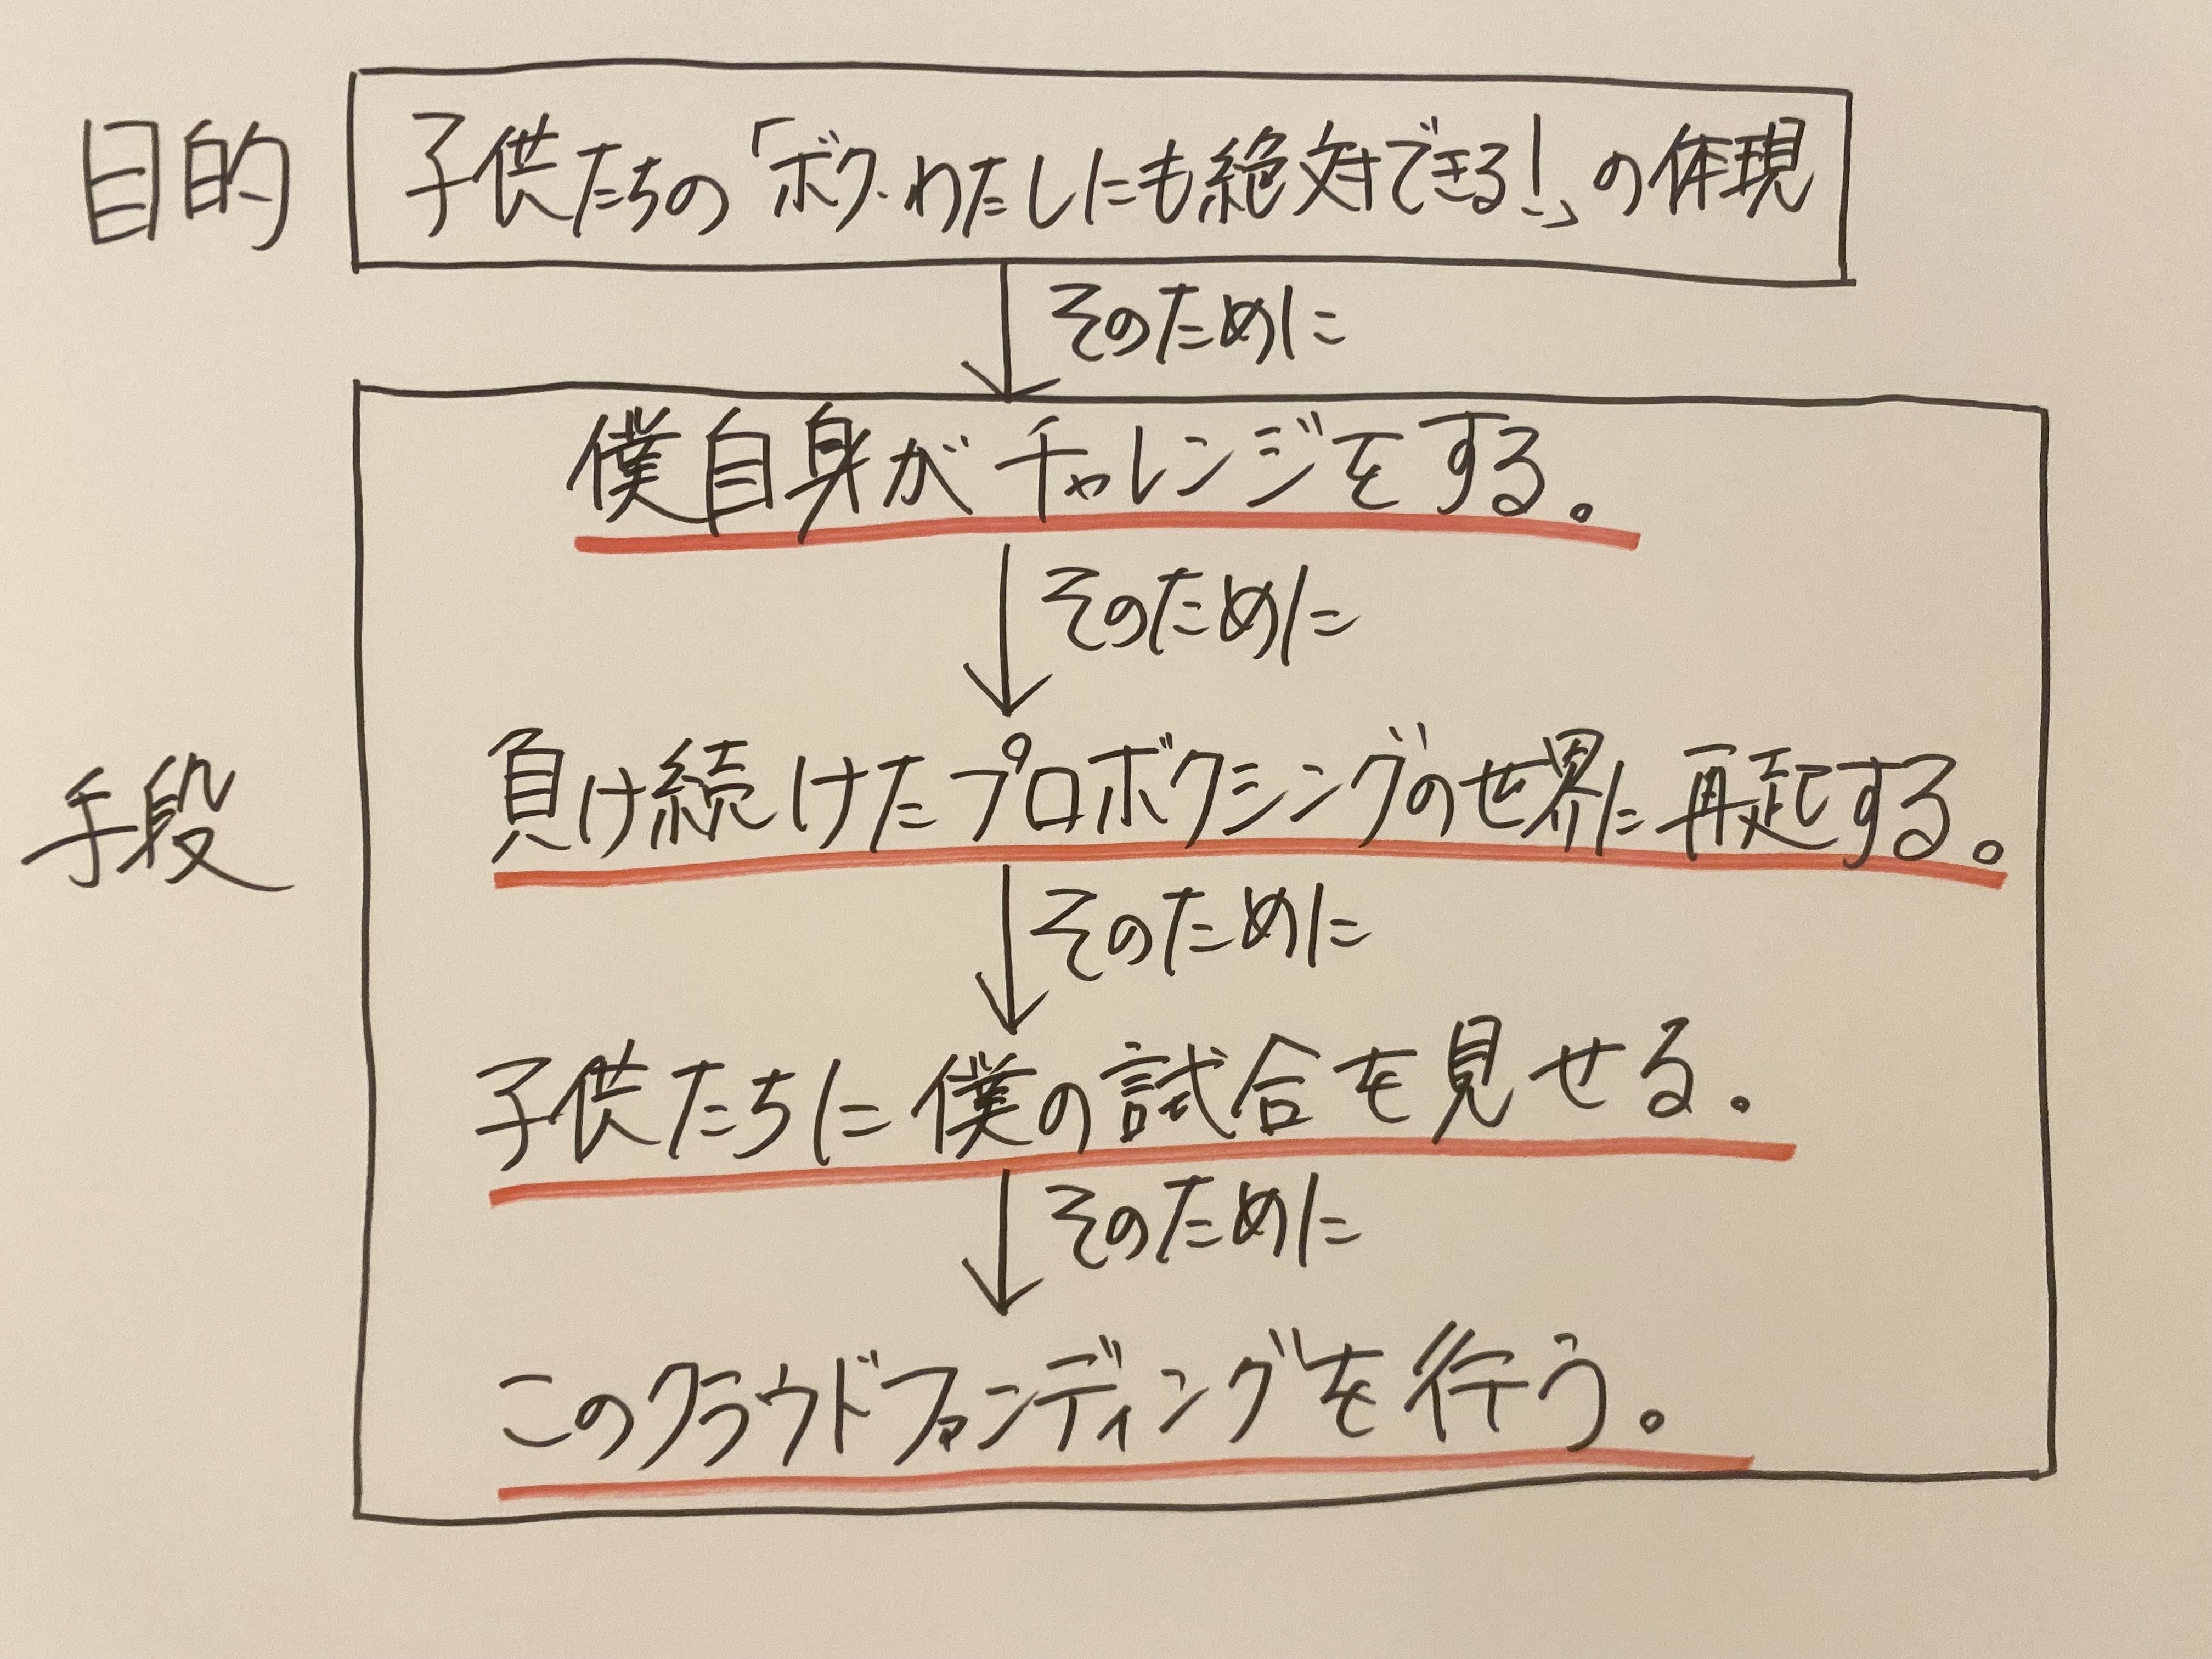 目的
子供たちの「ボク・わたしにも絶対できる!」の体現
そのために
僕自身がチャレンジをする。
そのために
手段
負け続けたプロボクシングの世界に再起する。
そのために
子供たちに僕の試合を見せる。
そのために
このクラウドファンディングを行う。